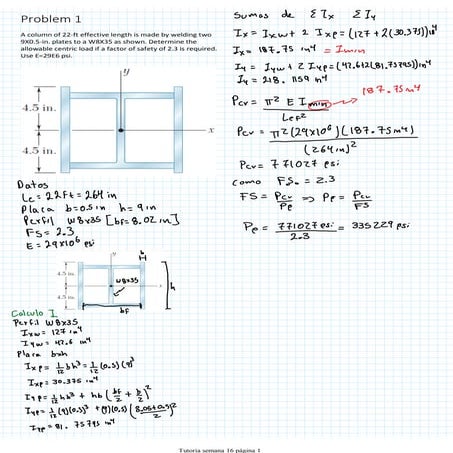 Problem 1
A column of 22-ft effective length is made by welding two
9X0.5-in. plates to a W8X35 as shown. Determine the
allowable centric load if a factor of safety of 2.3 is required.
Use E=29E6 psi.
y
4.5 in.
x
4.5 in.
Datos
Le = 22Ft = 264 in
Placa b=0.5 in h= 9 in
Perfil W8x35 [bf= 8.02 in]
FS = 2.3
E = 29x10⁶ psi
y
b
4.5 in.
W8x35
x
h
4.5 in.
bf
Calculo I
Perfil W8x35
Ixw = 127 in⁴
Iyw = 42.6 in⁴
Placa bxh
Ixp = 1/12 bh³ = 1/12 (0.5)(9)³
Ixp = 30.375 in⁴
Iyp = 1/12 hb³ + hb (bf/2 + b/2)²
Iyp = 1/12 (9)(0.5)³ + (9)(0.5) (8.02+0.5/2)²
Iyp = 81.75795 in⁴
Sumas de ΣIx ΣIy
Ix = Ixw + 2 Ixp = (127 + 2(30.375)) in⁴
Ix = 187.75 in⁴ = Imin
Iy = Iyw + 2 Iyp = (42.6+2(81.75795)) in⁴
Iy = 218. 1159 in⁴
187.75 in⁴
Pcr = π² E Imin / Lef²
Pcr = π² (29x10⁶) (187.75 in⁴) / (264 in)²
Pcr = 771027 psi
como FS. = 2.3
FS = Pcr/Pe ⇒ Pe = Pcr/FS
Pe = 771027 psi / 2.3 = 335229 psi
Tutoria semana 16 página 1